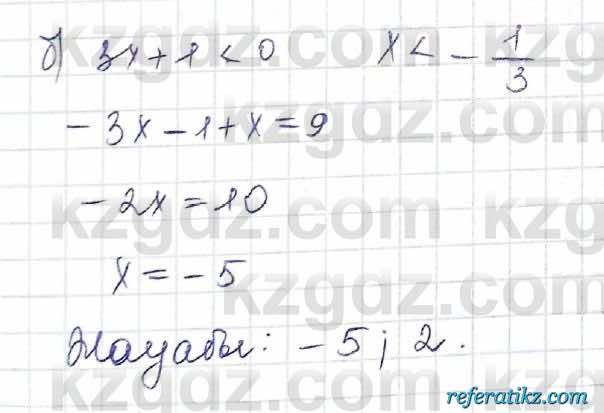 kzgdz.com
б) 3x + 1 < 0 x < - 1/3
- 3x - 1 + x = 9
kzgdz.com
- 2x = 10
kzgdz.com
x = - 5
kzgdz.com
Жауабы: - 5; 2.
referatikz.com